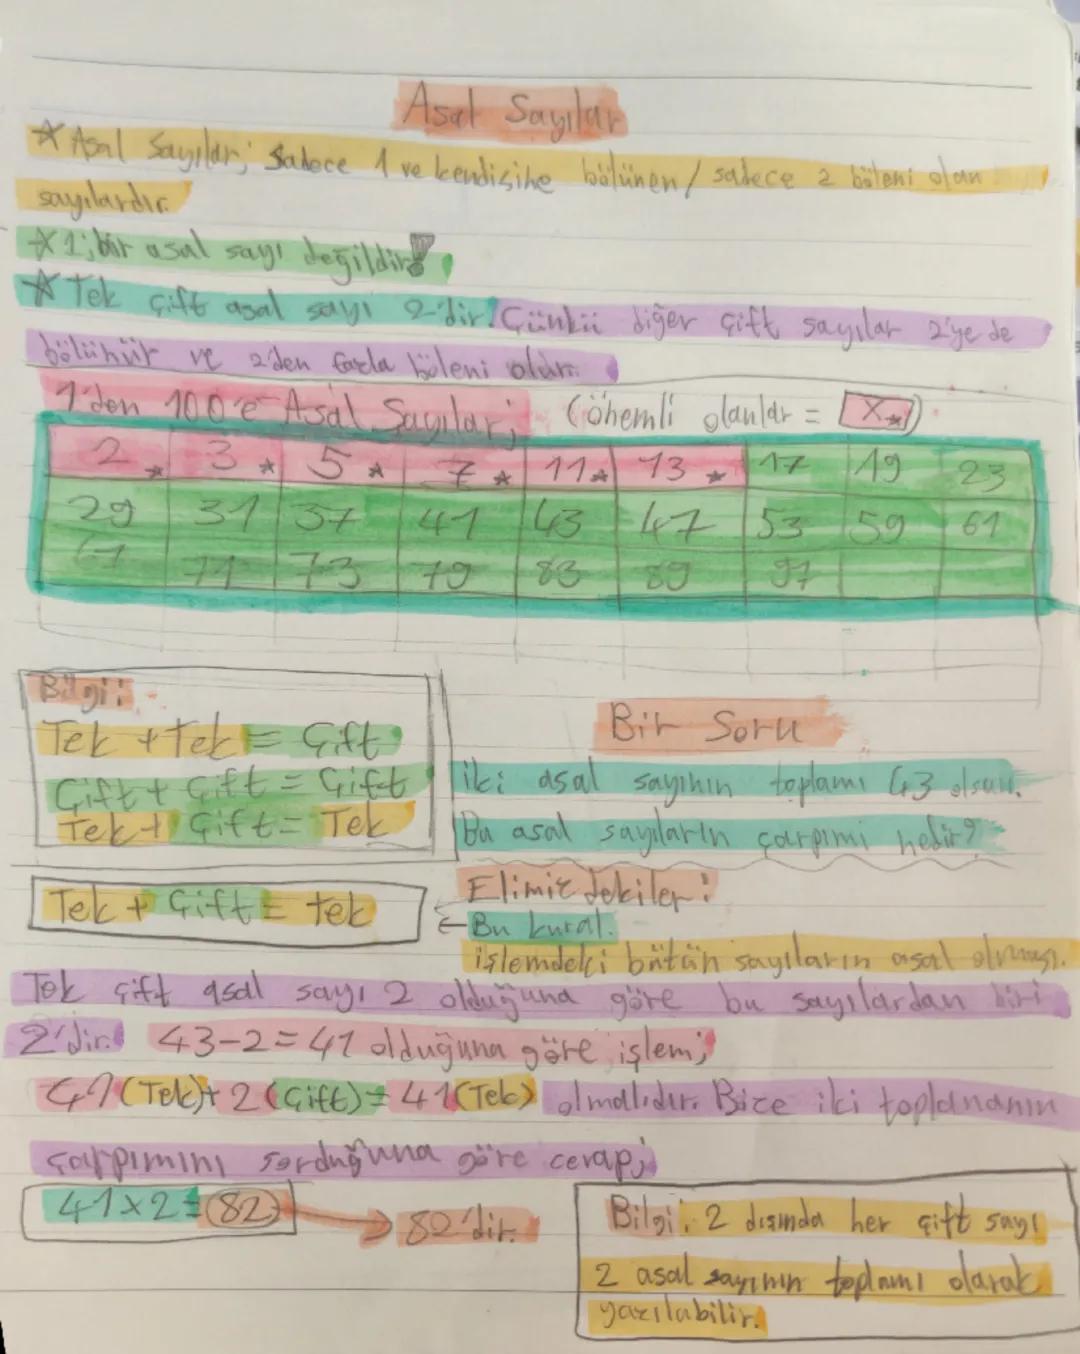 Asal Sayılar
☆ Asal Sayılar; Sadece 1 ve kendisine bölünen / sadece 2 böleni olan
sayılardır.
☆ 1; bir asal sayı değildir!
☆ Tek çift asal sayı 2'dir! Çünkü diğer çift sayılar 2'ye de
bölünür ve 2'den fazla böleni olur.
1'den 100'e Asal Sayılar; (önemli olanlar = X★)
2★ 3★ 5★ 7★ 11★ 13★ 17 19 23
29 31 37 41 43 47 53 59 61
67 71 73 79 83 89 97
Bilgi:
Tek + Tek = Çift
Çift + Çift = Çift
Tek + Çift = Tek
Bir Soru
iki asal sayının toplamı 43 olsun.
Bu asal sayıların çarpımı nedir?
Tek + Çift = tek
Elimizdekiler:
← Bu kural.
işlemdeki bütün sayıların asal olması.
Tek çift asal sayı 2 olduğuna göre bu sayılardan biri
2'dir. 43-2=41 olduğuna göre işlem;
41(Tek)+2(Çift)=41(Tek) olmalıdır. Bize iki toplananın
çarpımını sorduğuna göre cevap;
41x2=82 → 82'dir.
Bilgi: 2 dışında her çift sayı
2 asal sayının toplamı olarak
yazılabilir.